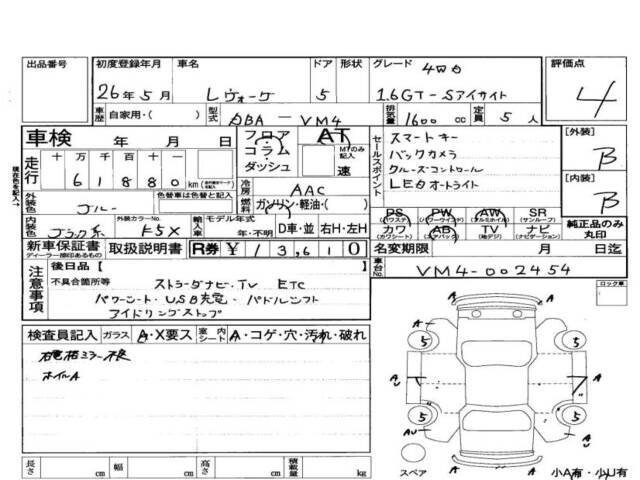 出品番号 初度登録年月 車名 ドア 形状 グレード 4WD 評価点
26年5月 レヴォーグ 5 1.6GT-Sアイサイト 4
車歴 自家用・( ) 型式 DBA-VM4 排気量 1600 cc 定員 5 人
車検 年 月 日 フロア コラム ダッシュ AT MTのみ記入 速
セールスポイント スマートキー
バックカメラ
クルーズコントロール
LEDオートライト
[外装] B
[内装] B
走行 十 万 千 百 十
6 1 8 8 0 km
冷房 AAC
外装色 ブルー 色替車は色替と記入 燃料 ガソリン・軽油・( )
PS (パワステ) PW (パワーウインド) AW (アルミホイル) SR (サンルーフ)
カワ (カワシート) AB (エアバック) TV (地デジ) ナビ (ナビゲーション)
純正品のみ丸印
内装色 ブラック系 外装カラーNo. K5X 輸入車 モデル年式 年・不明 D車・並 右H・左H
新車保証書 ディーラー捺印あるもの 取扱説明書 R券 ¥13,610 名変期限 月 日迄
車台No. VM4-002454
注意事項 後日品 [ ]
不具合箇所等 ストラーダナビ・TV ETC
パワーシート・USB充電・パドルシフト
アイドリングストップ
ロック車
検査員記入 ガラス A・X要ス 室内シート A・コゲ・穴・汚れ・破れ
ホイルA
A
5 5
A A
5 5
AU A
スペア A A 小A有・小U有
長さ cm 幅 cm 高さ cm 積載量 kg
現在色を記入→